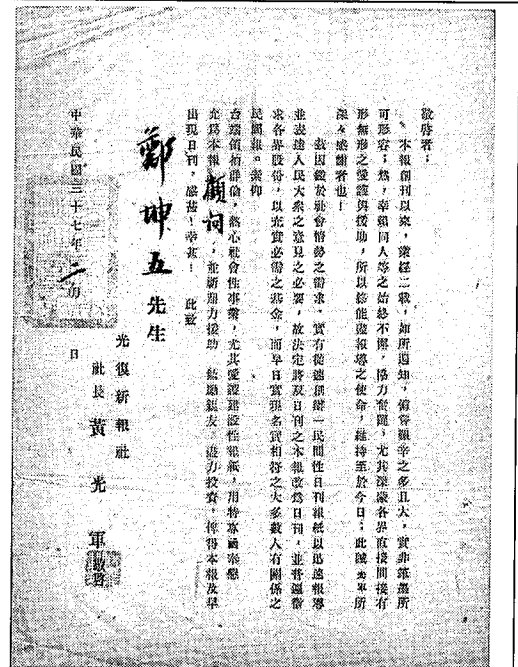 敬啓者:
本報創刊以來,業經二載,如所週知,備嘗艱辛之多且大,實非筆墨所
可形容;然,幸賴同人等之始終不懈,協力奮鬪,尤其深蒙各界直接間接有
形無形之愛護與援助,所以終能盡報導之使命,維持至於今日;此誠光軍所
深々感謝者也!
茲因鑑於社會情勢之需求,實有從速創辦一民間性日刊報紙以迅速報導
並表達人民大衆之意見之必要,故決定將雙日刊之本報改爲日刊,並普遍徵
求各界股份,以充實必需之基金,而早日實現名實相符之大多數人有關係之
民間報。素仰
台端領袖群倫,熱心社會性事業,尤其愛護建設性報紙,用特專函奉懇
允爲本報顧問,並祈迎力援助,鼓勵親友,盡力投資,俾得本報及早
出現日刊,感荷!幸甚! 此致
鄭坤五先生
光復新報社
社長 黃光軍 敬啓
中華民國三十七年二月 日